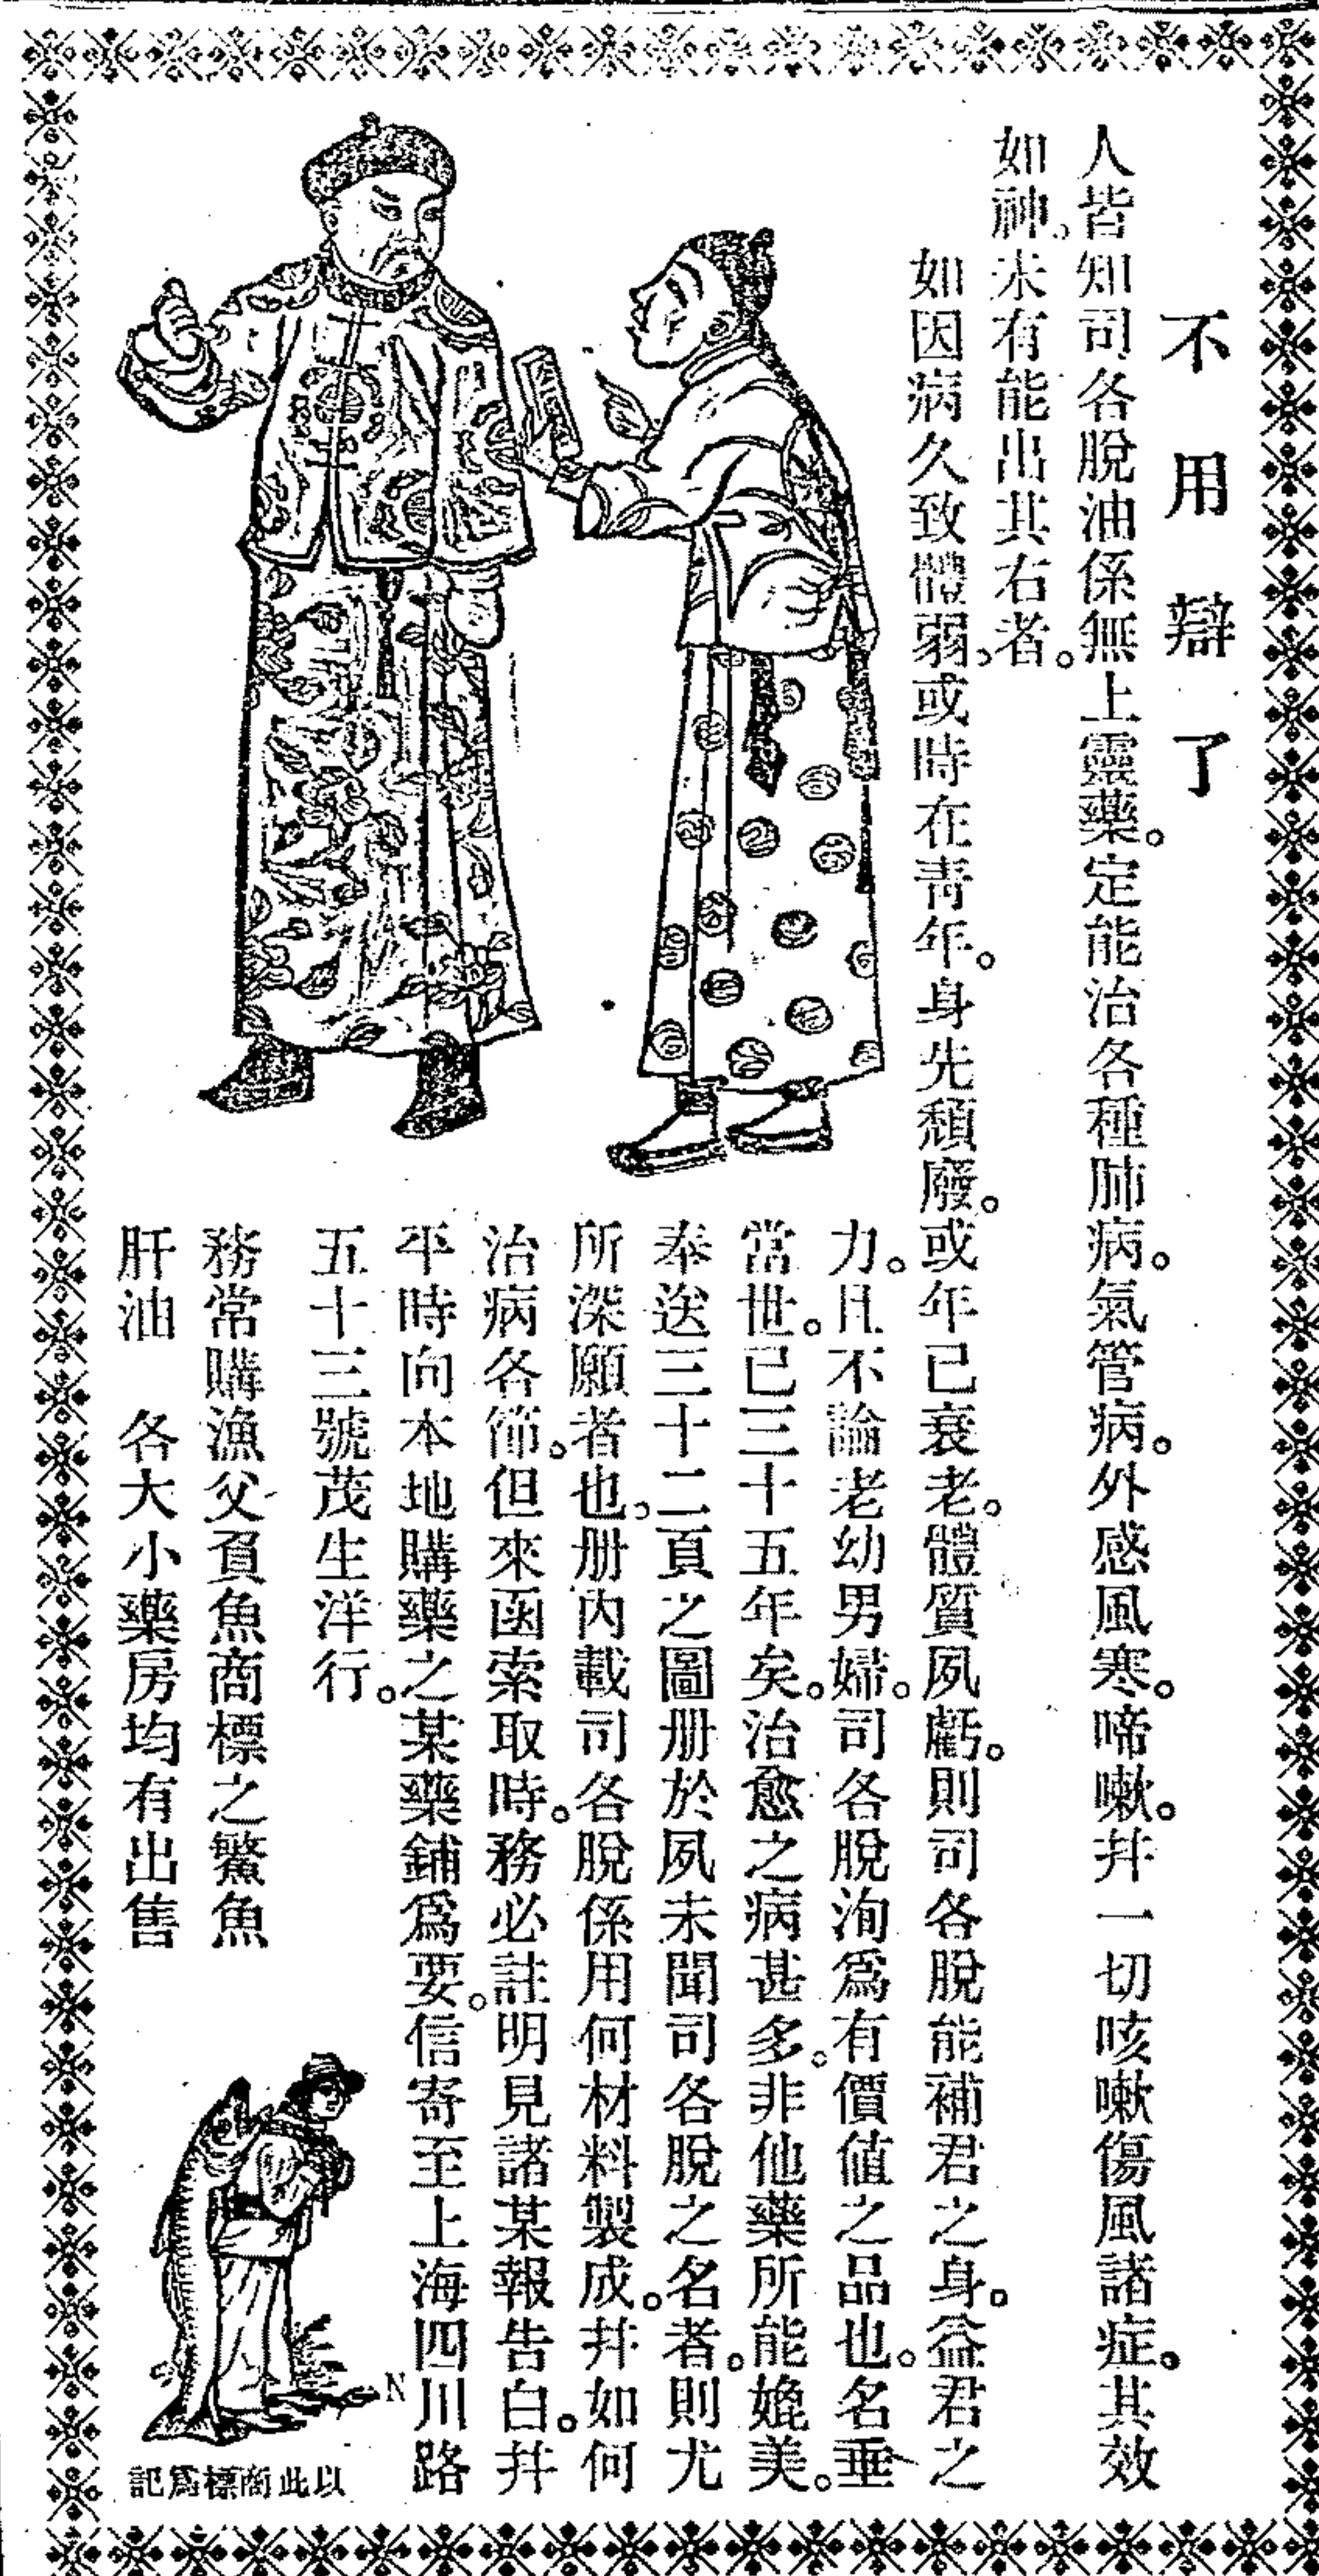 不用辯了
人皆知司各脫油係無上靈藥。定能治各種肺病。氣管病。外感風寒。啼嗽。幷一切咳嗽傷風諸症。其效
如神。未有能出其右者。
如因病久致體弱。或時在靑年。身先頹廢。或年已衰老。體質夙虧。則司各脫能補君之身。益君之
力。且不論老幼男婦。司各脫洵爲有價値之品也。名垂
當世。已三十五年矣。治愈之病甚多。非他藥所能媲美。
奉送三十二頁之圖册於夙未聞司各脫之名者。則尤
所深願者也。册內載司各脫係用何材料製成。幷如何
治病各節。但來函索取時。務必註明見諸某報告白。幷
平時向本地購藥之某藥鋪爲要。信寄至上海四川路
五十三號茂生洋行。
務常購漁父負魚商標之鰵魚
肝油　各大小藥房均有出售
N
以此商標爲記